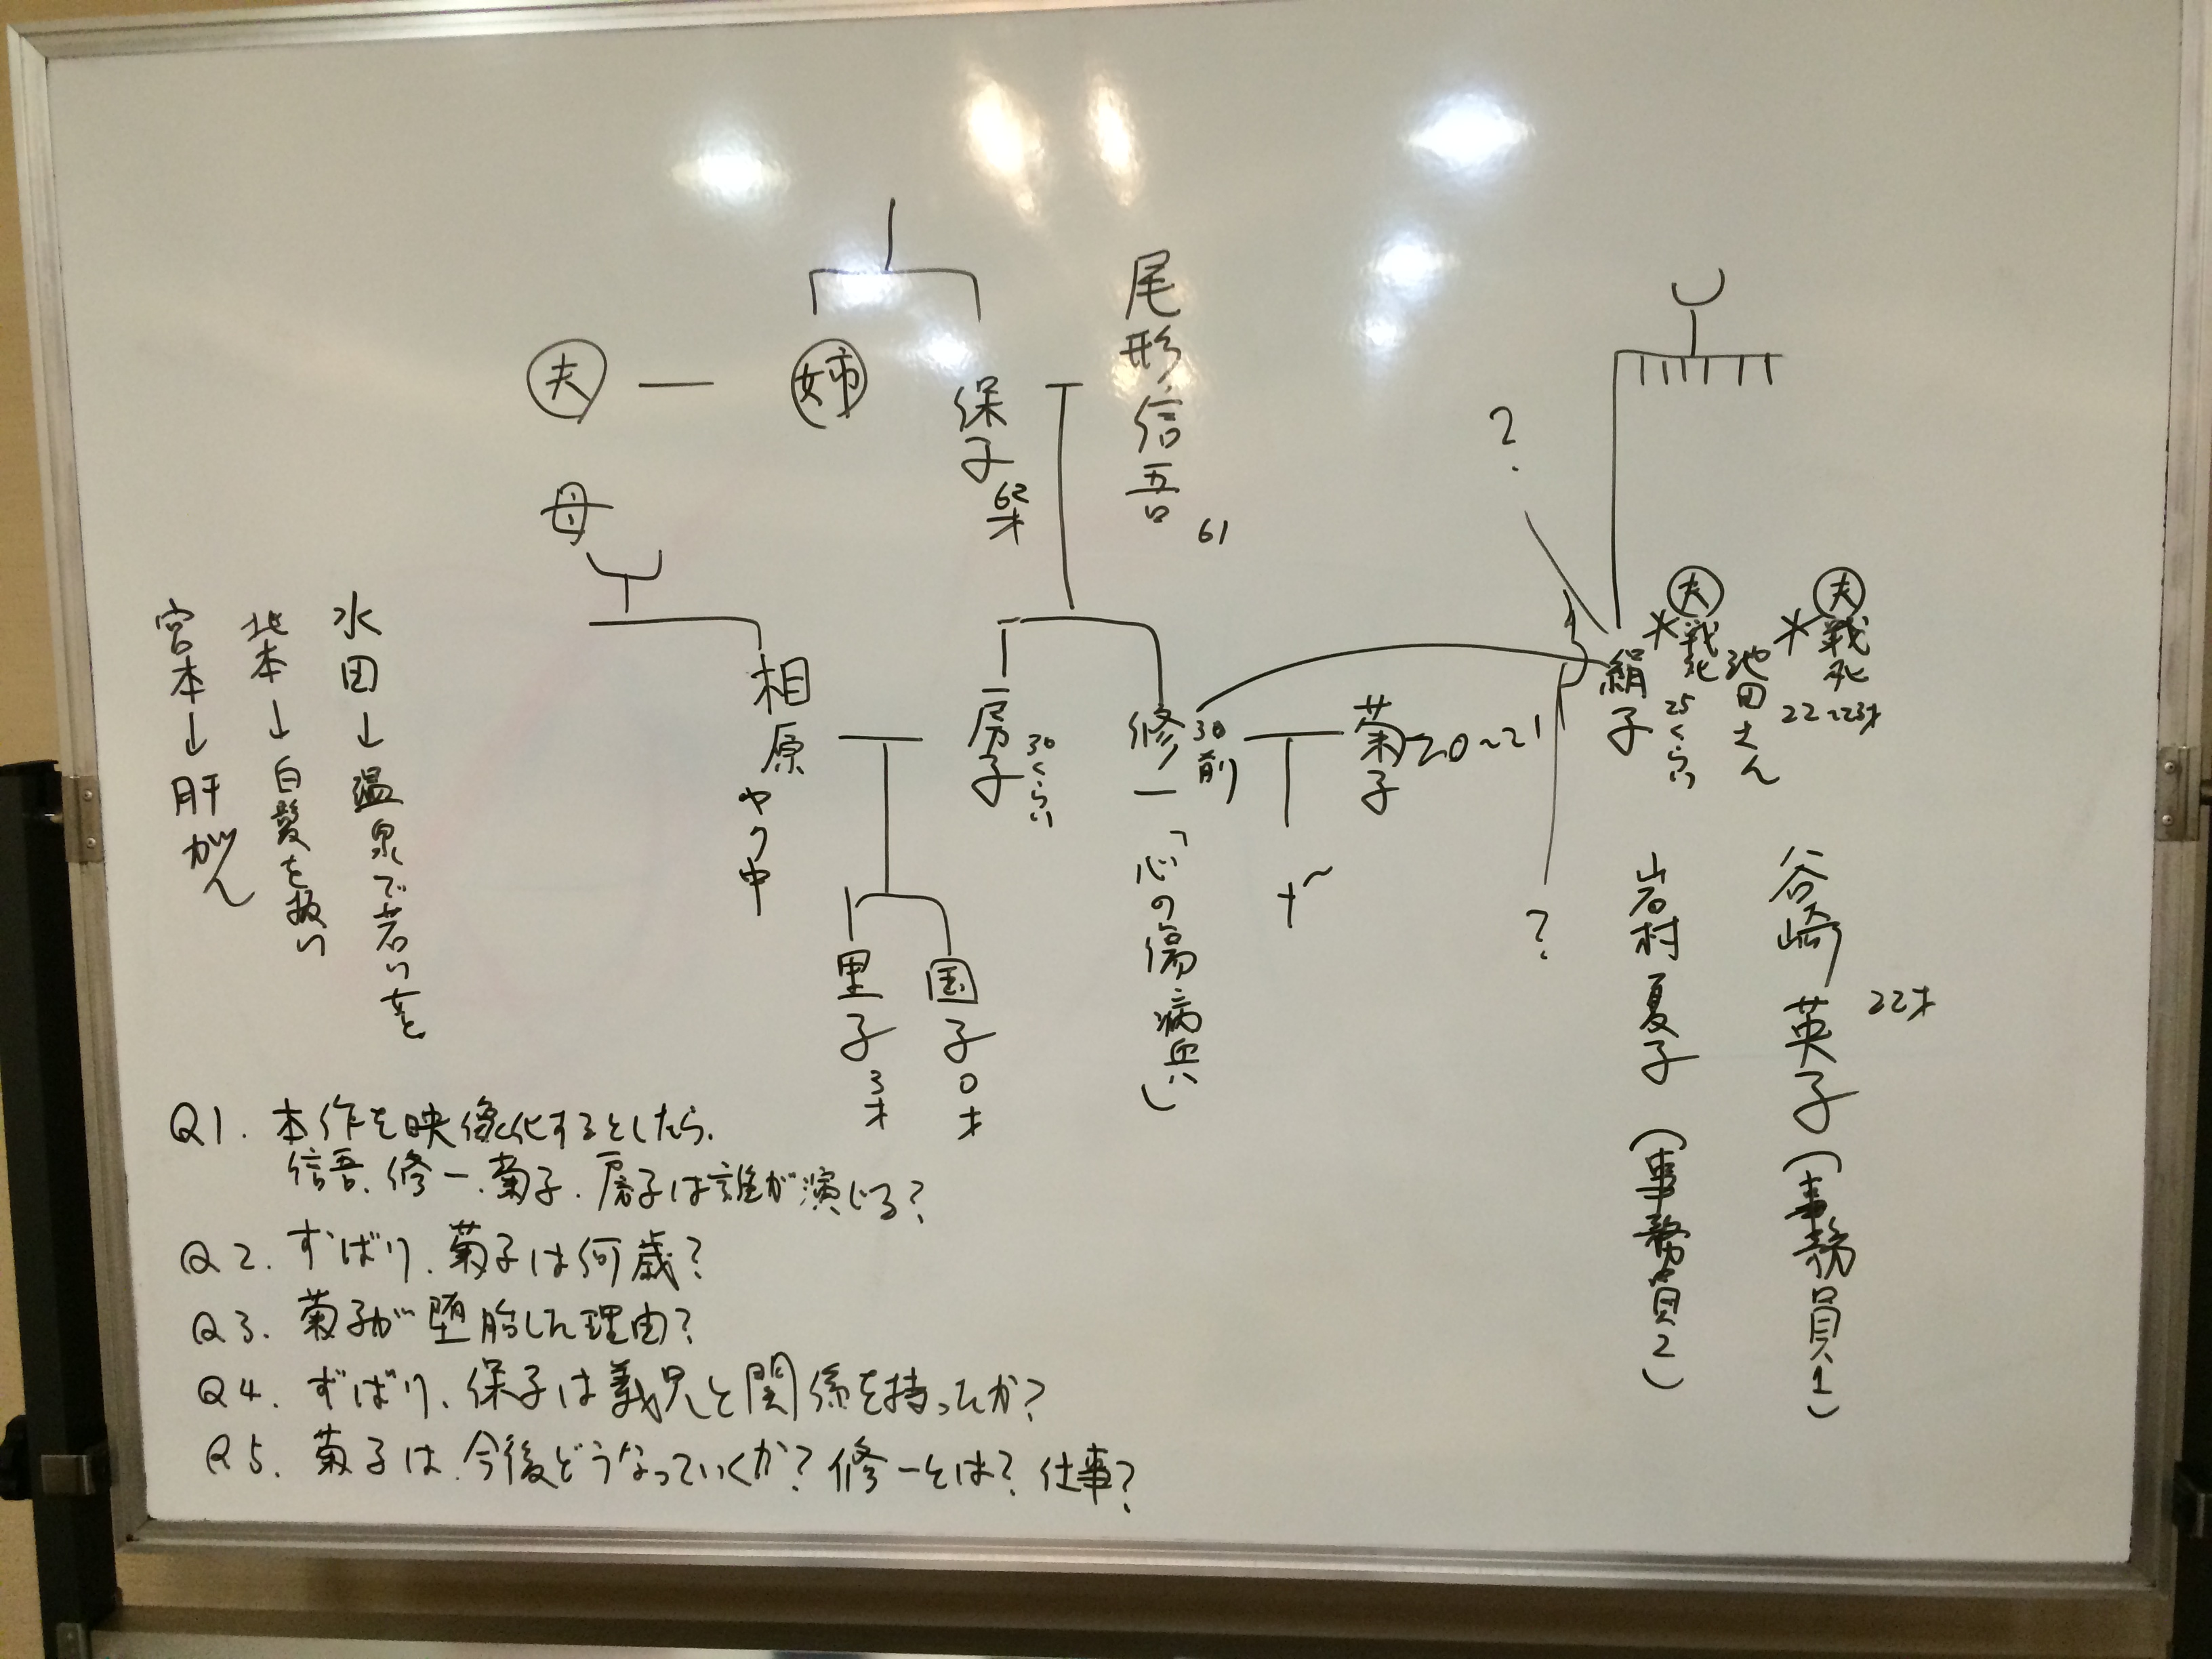 尾形信吾
61
夫
姉
保子
62才
母
?
夫
戦死
25くらい
池田さん
夫
戦死
22~23才
絹子
相原
ヤク中
房子
30くらい
修一
30前
「心の傷病兵」
菊子
20~21
?
里子
3才
国子
0才
水田→温泉で若い女と
北本→白髪を抜い
宮本→肝がん
谷崎英子(事務員1)
22才
岩村夏子(事務員2)
Q1. 本作を映像化するとしたら、
信吾、修一、菊子、房子は誰が演じる?
Q2. ずばり、菊子は何歳?
Q3. 菊子が堕胎した理由?
Q4. ずばり、保子は義兄と関係を持ったか?
Q5. 菊子は、今後どうなっていくか? 修一とは? 仕事?